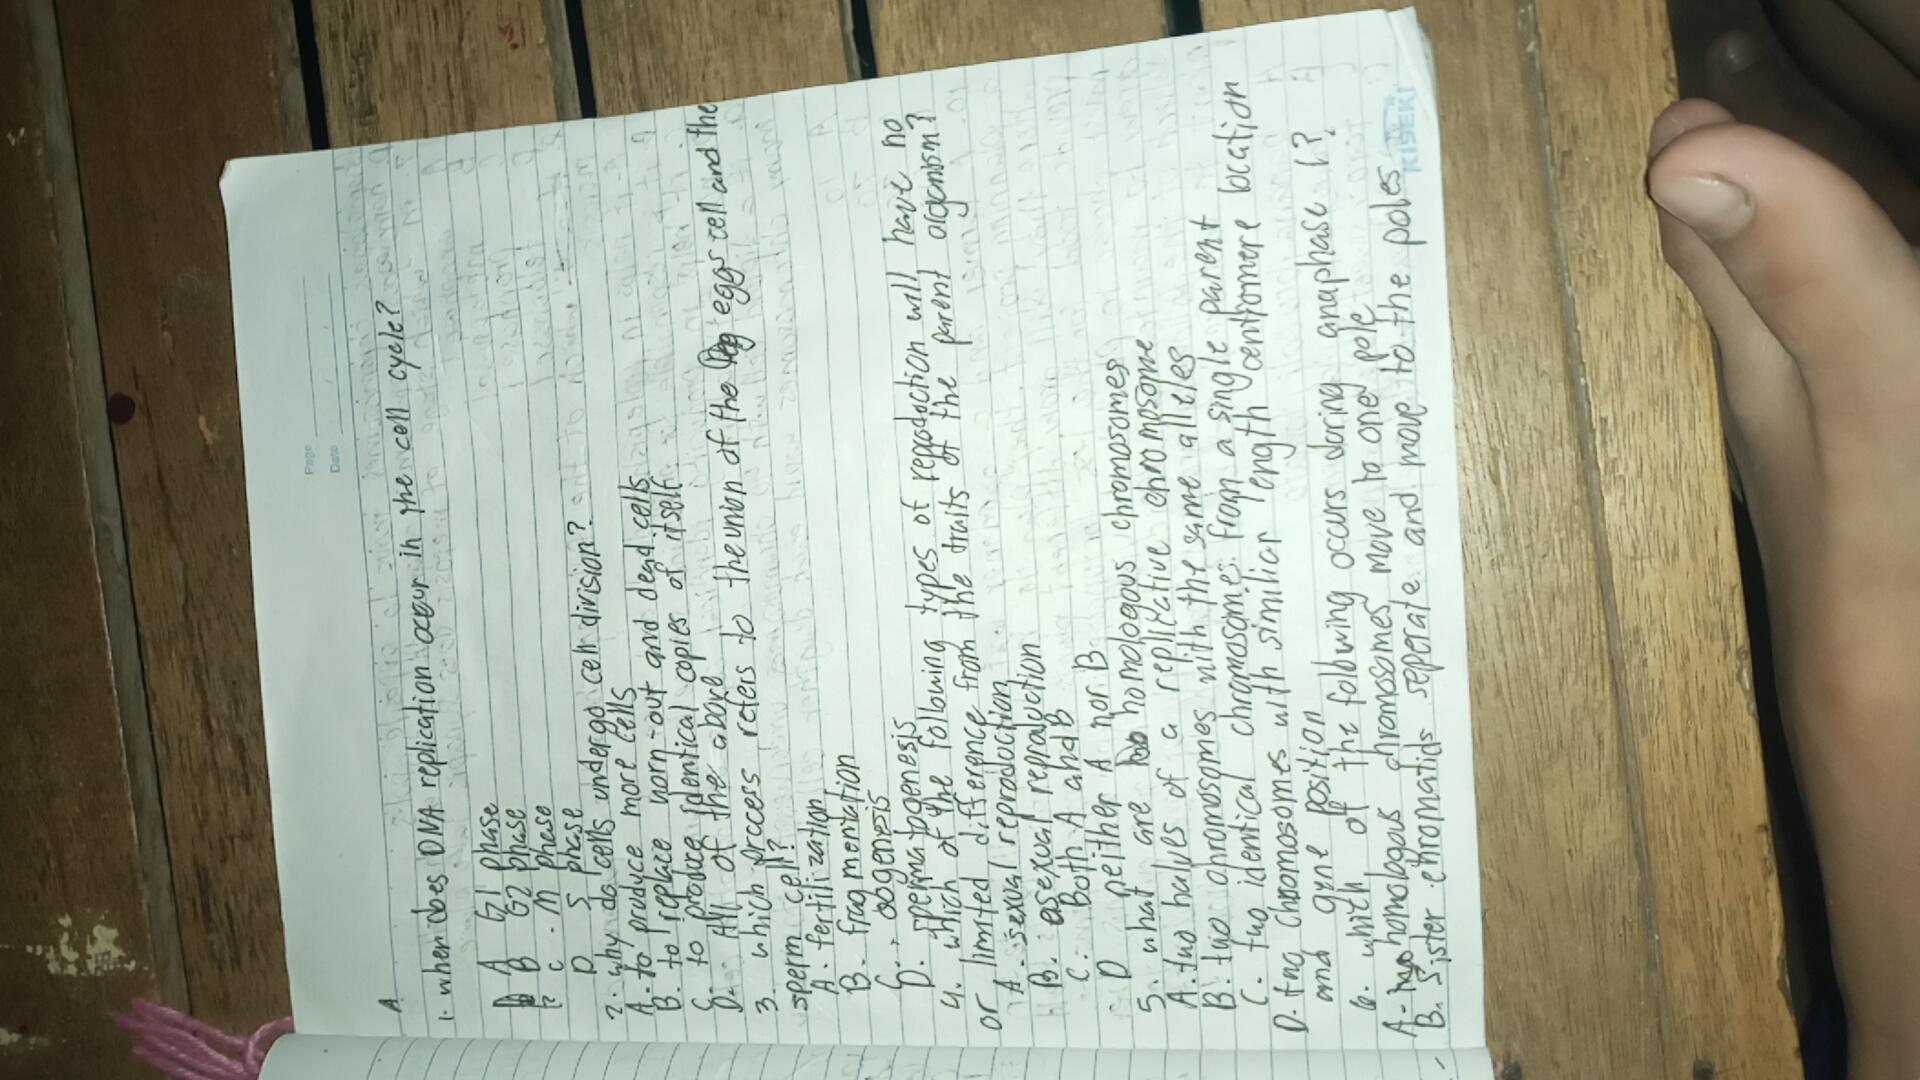 Page
Date
A
1. when does DNA replication occur in the cell cycle?
A G1 phase
B G2 phase
C. M phase
D S phase
2. why do cells undergo cell division?
A. to produce more cells
B. to replace worn-out and dead cells
C. to produce identical copies of itself
D. All of the above
3. which process refers to the union of the eggs cell and the
sperm cell?
A. fertilization
B. fragmentation
C. oogenesis
D. spermatogenesis
4. which of the following types of reproduction will have no
or limited difference from the traits of the parent organism?
A. sexual reproduction
B. asexual reproduction
C. Both A and B
D neither A nor B
5. what are homologous chromosomes
A. two halves of a replicative chromosome
B. two chromosomes with the same alleles
C. two identical chromosomes from a single parent
D. two chromosomes with similiar length centromere location
and gene position
6. which of the following occurs during anaphase 1?
A- homologous chromosomes move to one pole
B. Sister chromatids seperate and move to the poles
KISEKI